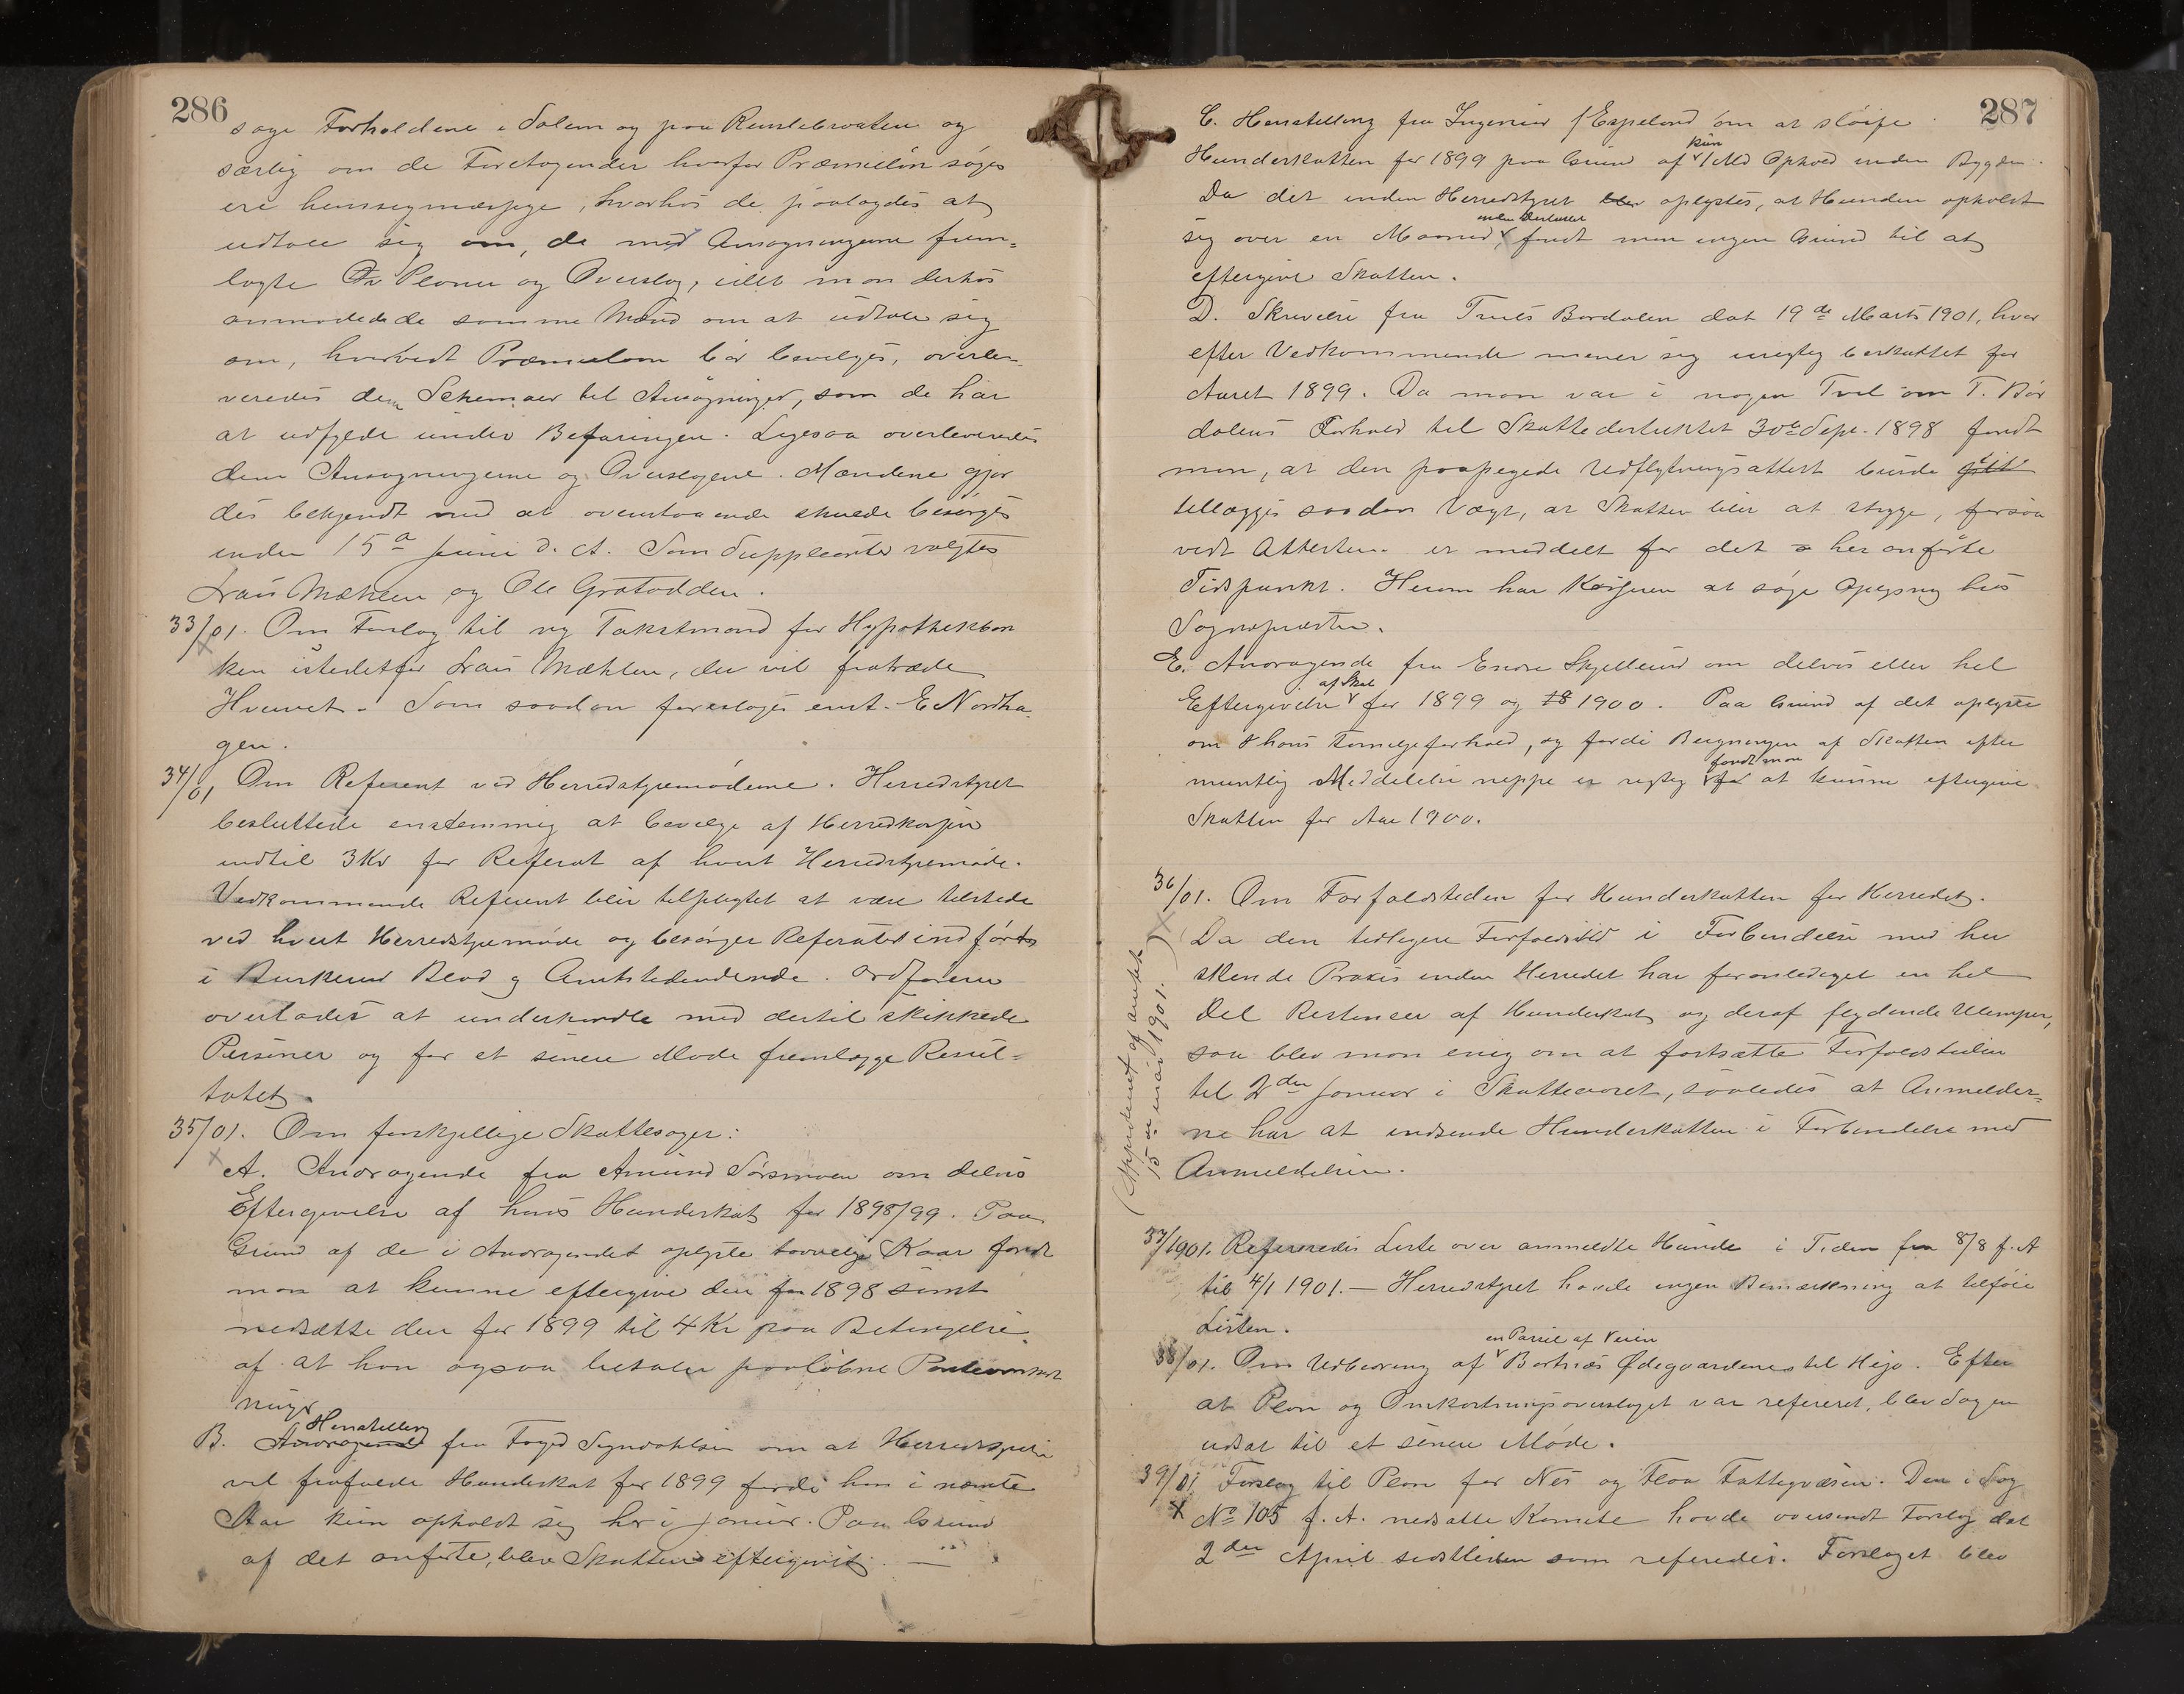 286
søge Forholdene i Solem og paa og
særlig om de Foretagender hvorfor Præmielån søges
ere hensigtmæssige, hvorhos de paalagdes at
udtale sig om, de med Ansøgningerne frem-
lagte Planer og Overslag, idet man derhos
anmodede de samme Mænd om at udtale sig
om, hvorvidt Præmielaan bör bevilges, overle-
veredes dem Schemaer til Ansøgninger, som de har
at udfylde under Befaringen. Ligesaa overleveredes
dem Ansøgningerne og Overslagene. Mændene gjor
des bekjendt med at ovenstaaende skulde besörges
inden 15de Juni d. A. Som Suppleanter valgtes
Lars Mæhlen og Ole Grøtådden.
33/01. Om Forslag til ny Takstmand for Hypothekban
ken istedetfor Lars Mæhlen, der vil fratræde
Hvervet. Som saadan foresloges enst. E Nordha-
gen.
34/01 Om Referent ved Herredstyremöderne. Herredstyret
besluttede enstemmig at bevilge af Herredkassen
indtil 3 Kr for Referat af hvert Herredstyremöde.
Vedkommende Referent blir tilpligtet at være tilstede
ved hvert Herredstyremöde og besörger Referatet indförtes
i Buskerud Blad og Amtstidendende. Ordføreren
overlades at underhandle med dertil skikkede
Personer og for et senere Møde fremlægge Resul-
tatet.
35/01. Om forskjellige Skattesager:
A. Andragende fra Amund Sørsmoen om delvis
Eftergivelse af hans Hundeskat for 1898/99. Paa
Grund af de i Andragendet oplyste Kaar fandt
man at kunne eftergive den for 1898 samt
nedsætte den for 1899 til 4 Kr paa Betingelse
af at han ogsaa betaler paaløbne
ninger
Henstilling
B. Andragende fra Foged om at Herredstyret
vil frafalde Hundeskat for 1899 fordi han i nævnte
Aar kun opholdt sig her i Januar. Paa Grund
af det anførte, blev Skatten eftergivet. —
287
C. Henstilling fra Ingeniør Espeland om at slöife
kun
Hundeskatten for 1899 paa Grund af 1 Md Ophold inden Bygden.
Da det inden Herredstyret blev oplystes, at Hunden opholdt
sig over en Maaned, fandt man ingen Grund til at
eftergive Skatten.
D. Skrivelse fra Truls Bardalen dat 19de Marts 1901, hvor
efter Vedkommende mener sig urigtig beskattet for
Aaret 1899. Da man var i nogen Tvil om T. Bör
dalens Forhold til Skattedistriktet 30te Sept. 1898 fandt
man, at den paapegede Udflytningsattest burde
tillægges saadan Vægt, at Skatten blir at stryge, forsaa
vidt Attesten er meddelt for det her anförte
Tidspunkt. Herom har Kasseren at søge Oplysning hos
Sognepræsten.
E. Andragende fra Endre Skjellerud om delvis eller hel
af Skat
Eftergivelse for 1899 og 18 1900. Paa Grund af det oplyste
om hans Familjeforhold, og fordi Beregningen af Skatten efter
fandt man
muntlig Meddelelse neppe er rigtig at kunne eftergive
Skatten for Aar 1900.
36/01. Om Forfaldstiden for Hundeskatten for Herredet.
Da den tidligere Forfaldstid i Forbindelse med her
skende Praxis inden Herredet har foranlediget en hel
Del Restancer af Hundeskat og deraf flydende Ulemper,
saa blev man enig om at fortsætte Forfaldstiden
til 2den Januar i Skatteaaret, såaledes at Anmelder-
ne har at indsende Hundeskatten i Forbindelse med
Anmeldelsen.
(Approberet af amtet
15de mai 1901.)
37/1901. Refereredes Liste over anmeldte Hunde i Tiden fra 8/8 f. A
til 4/1 1901. — Herredstyret havde ingen Bemærkning at tilföie
Listen.
en Parsel af Veien
38/01. Om Udbedring af Bortnæs Ødegaardenes til Hejo. Efter
at Plan og Omkostningsoverslaget var refereret, blev Sagen
udsat til et senere Möde.
39/01 Forslag til Plan for Nes og Flaa Fattigvæsen. Den i Sag
No 105 f. A. nedsatte Komite havde oversendt Forslag dat
2den April sidstleden som referedes. Forslaget blev